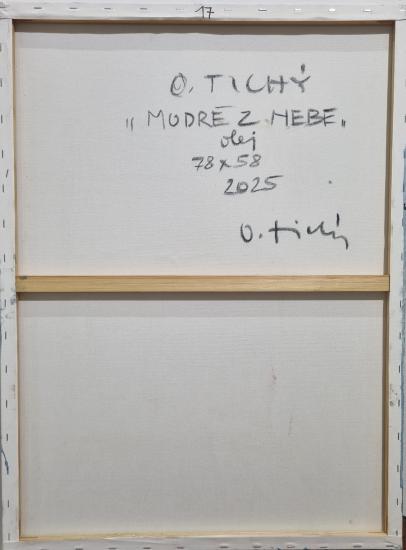 17
O. TICHÝ
„MODRÉ Z NEBE„
olej
78x58
2025
O. Tichý